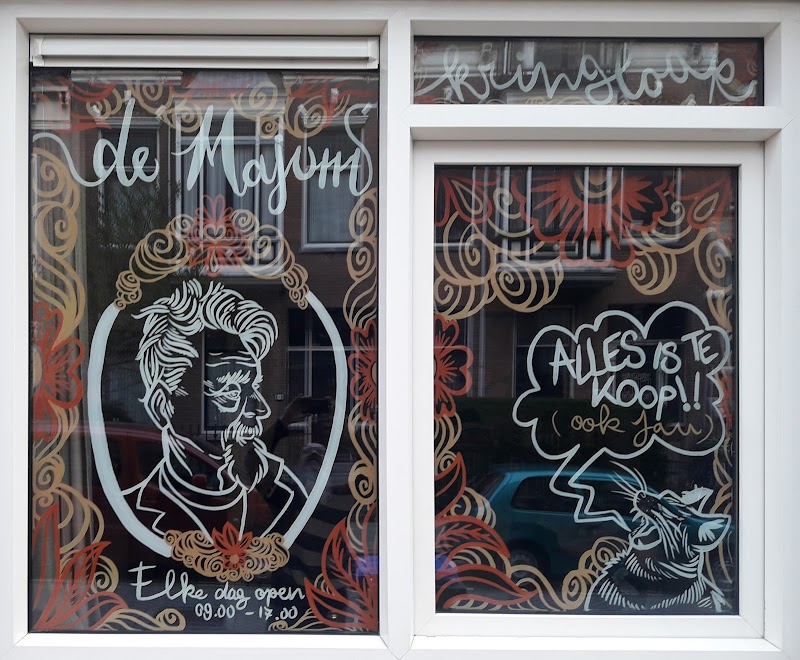 de Majoor
kringloop
Elke dag open
09.00 - 17.00
ALLES IS TE
KOOP!!
(ook Jan)